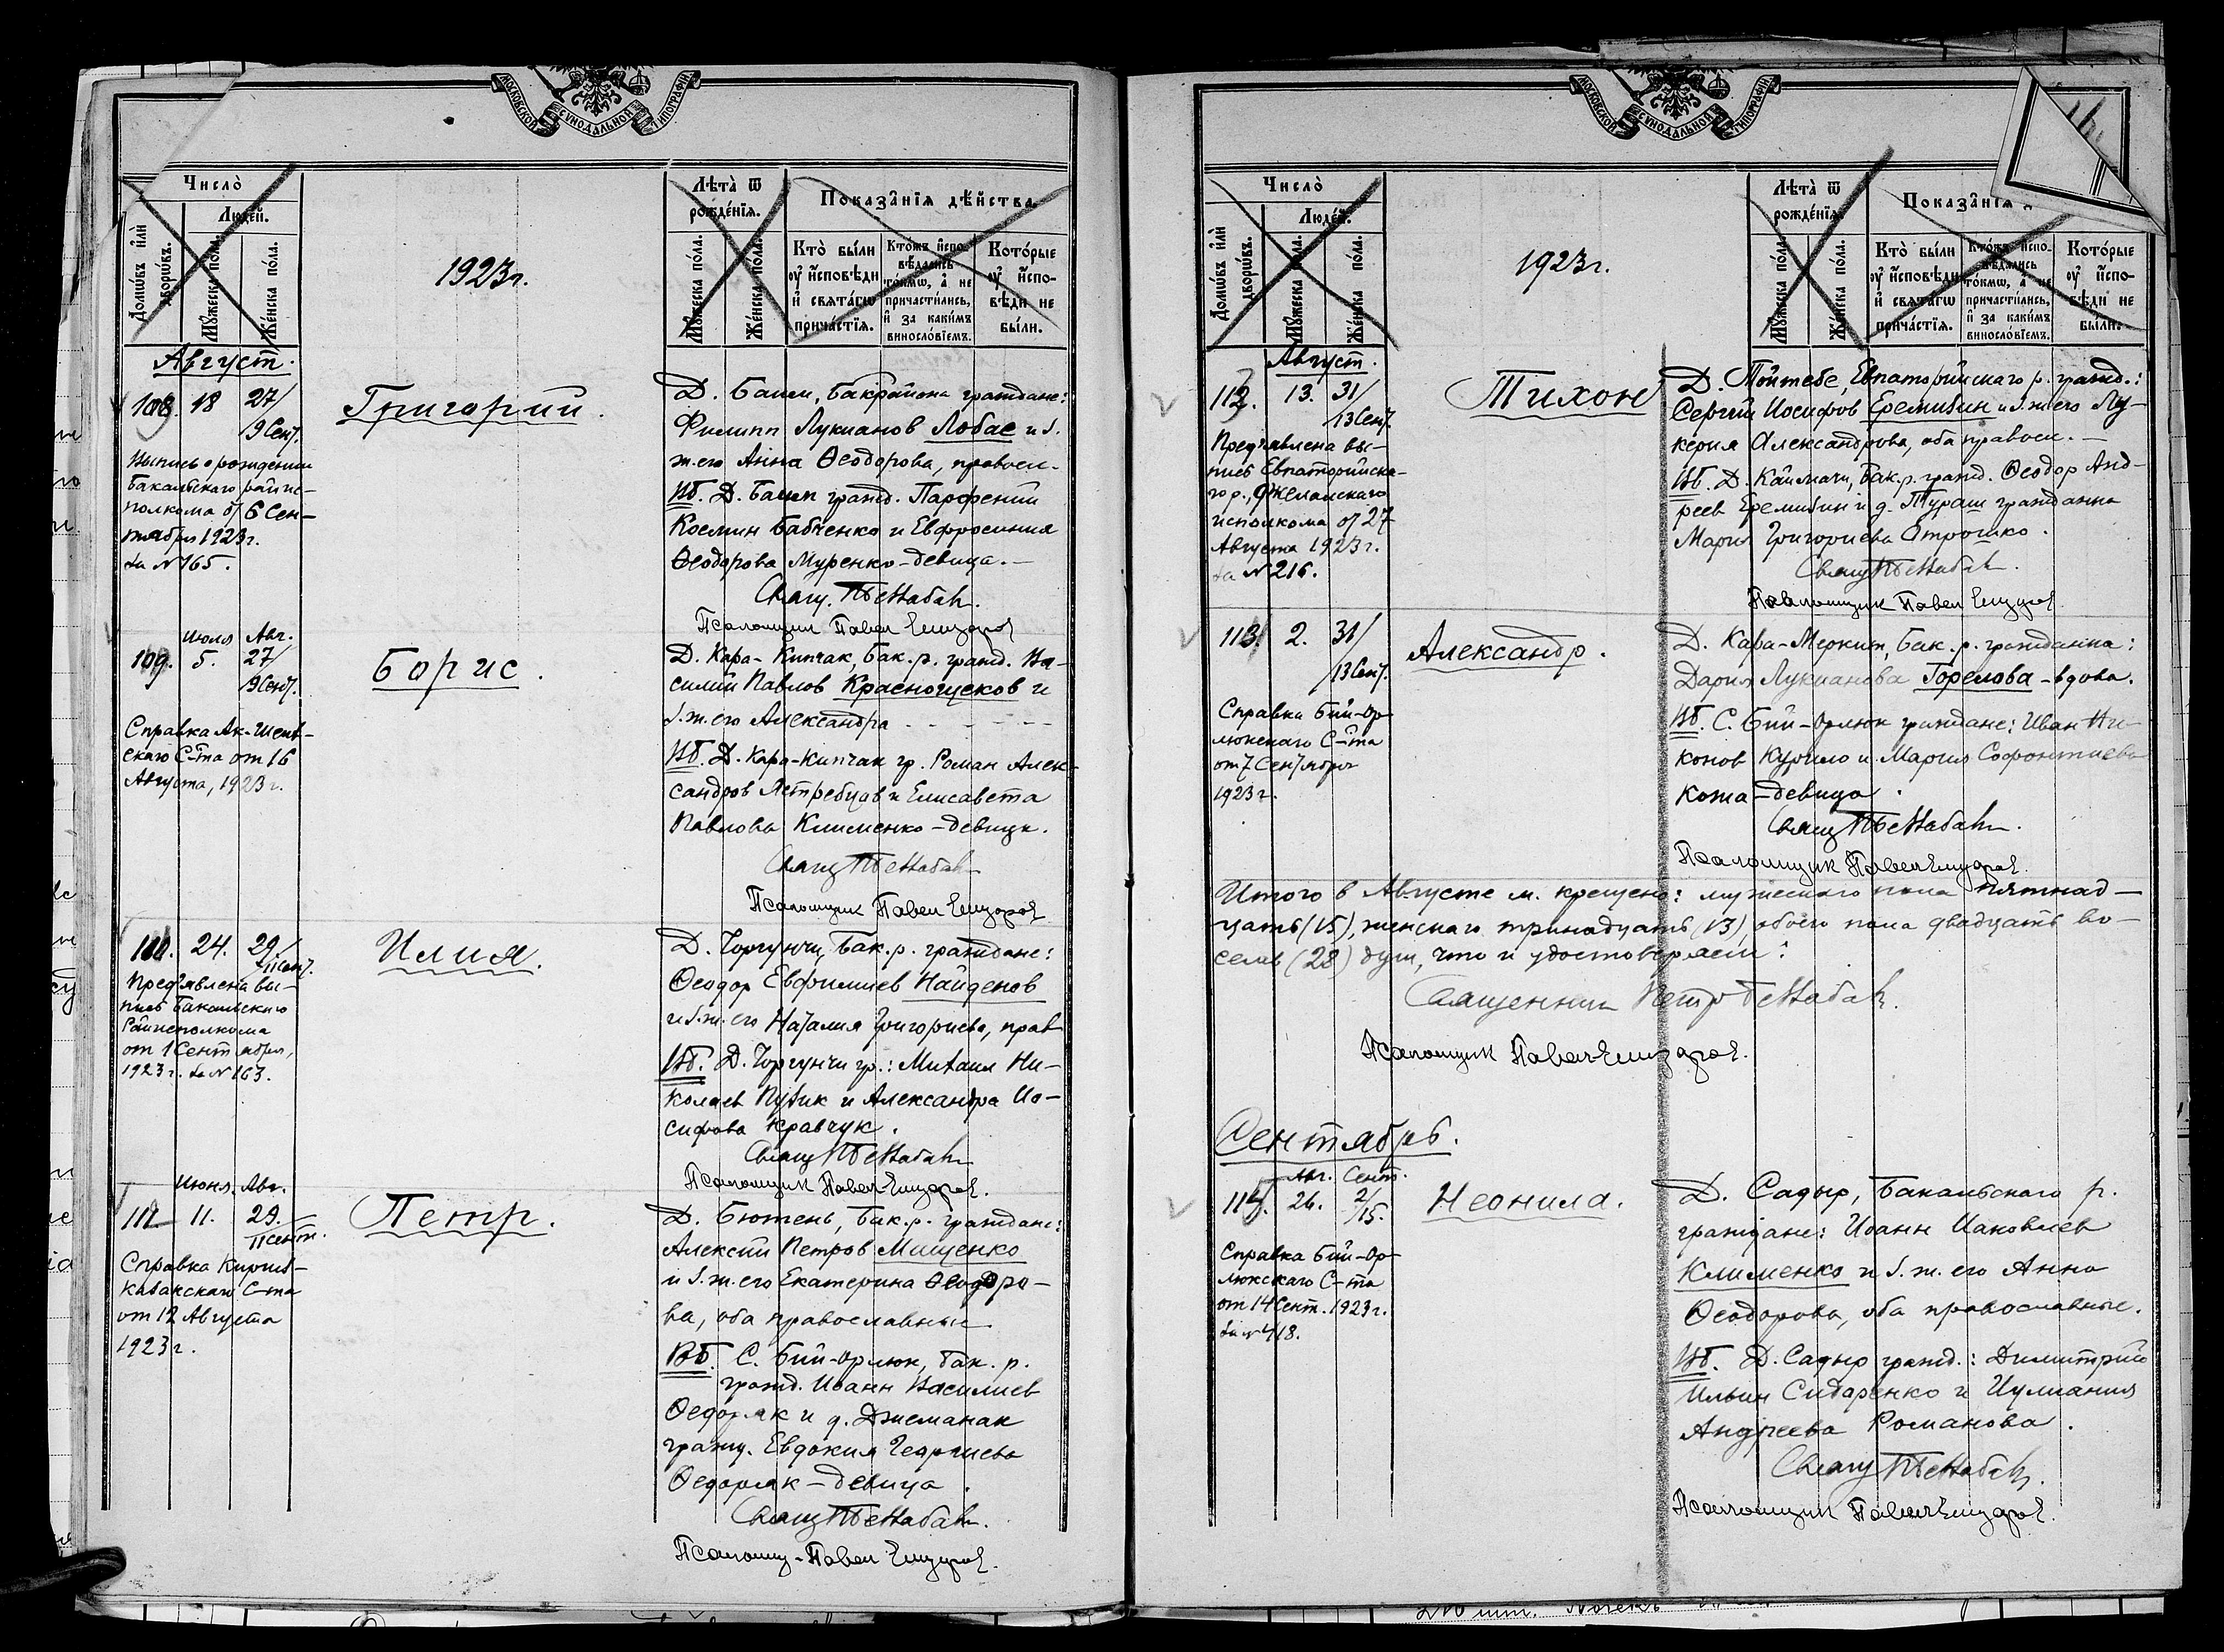 МОСКОВСКОЙ СѴНОДАЛЬНОЙ ТИПОГРАФІИ
Число̀
Людéй.
Домѡ́въ и҆лѝ дворѡ́въ.
Мꙋ́жеска по́ла.
Же́нска по́ла.
1923г.
Лѣ́та ѿ рожде́нїѧ.
Мꙋ́жеска по́ла.
Же́нска по́ла.
Показа̑нїѧ дѣ́йства
Кто̀ бы́ли оу҆ и҆сповѣ́ди и҆ свѧта́гѡ прича́стїѧ.
Кто́жъ и҆спо-
вѣ́дались
то́кмѡ, а҆ не
причасти́лись,
и҆ за каки́мъ
винослові́емъ.
Кото́рые оу҆ и҆спо-
вѣ́ди не бы́ли.
Август.
108. 18 27/
9 Сент.
Выпись о рождении
Бакальского райис-
полкома от 6 Сен-
тября 1923г.
за № 165.
Григорий.
Д. Башм, Бакрайона граждане:
Филипп Лукианов Лобас и з.
ж. его Анна Ѳеодорова, правосл.
Вб. Д. Башм гражд. Парфений
Космин Бабченко и Евфросиния
Ѳеодорова Муренко - девица.
Свящ.
Псаломщик Павел
Июля Авг.
109. 5. 27/
9 Сент.
Справка Ак-Шеих-
скаго С-та от 16
Августа, 1923г.
Борис.
Д. Кара-Кипчак, Бак. р. гражд. Ва-
силий Павлов Красногусков и
з. ж. его Александра - - - -
Вб. Д. Кара-Кипчак гр. Роман Алек-
сандров Ястребцов и Елисавета
Павлова Клименко - девицы.
Свящ
Псаломщик Павел
110. 24. 29/
11 Сент.
Пред'явлена вы-
пись Бакальского
Райисполкома
от 1 Сентября,
1923г. за № 163.
Илия.
Д. Чоргунчи, Бак. р. граждане:
Ѳеодор Евфимиев Найденов
и з. ж. его Наталия Григориева, прав
Вб. Д. Чоргунчи гр.: Михаил Ни-
колаев Пузик и Александра Ио-
сифова Кравчук.
Свящ
Псаломщик Павел
Июня. Авг.
111 11. 29.
11 сент.
Справка Кирей-
казакскаго С-та
от 12 Августа
1923г.
Петр.
Д. Бютень, Бак. р. граждане:
Алексий Петров Мищенко
и з. ж. его Екатерина Ѳеодоро-
ва, оба православные
Вб. С. Бий-Орлюк, бак. р.
гражд. Иоанн Василиев
Ѳедоряк и д. Джеманак
гражд. Евдокия Георгиева
Ѳедоряк - девица.
Свящ
Псаломщ - Павел
МОСКОВСКОЙ СѴНОДАЛЬНОЙ ТИПОГРАФІИ
Число̀
Людéй.
Домѡ́въ и҆лѝ дворѡ́въ.
Мꙋ́жеска по́ла.
Же́нска по́ла.
1923г.
Лѣ́та ѿ рожде́нїѧ.
Мꙋ́жеска по́ла.
Же́нска по́ла.
Показа̑нїѧ д
Кто̀ бы́ли оу҆ и҆сповѣ́ди и҆ свѧта́гѡ прича́стїѧ.
Кто́жъ и҆спо-
вѣ́дались
то́кмѡ, а҆ не
причасти́лись,
и҆ за каки́мъ
винослові́емъ.
Кото́рые оу҆ и҆спо-
вѣ́ди не бы́ли.
Август.
112. 13. 31/
13 Сент.
Пред'явлена вы-
пись Евпаторийска-
го р., Джелалскаго
исполкома от 27
Августа 1923г.
за № 216.
Тихон
Д. Тойтебе, Евпаторийскаго р. гражд.:
Сергий Иосифов Еремизин и з. ж. его Лу-
керия Александрова, оба правосл.
Вб. Д. Каймачи, Бак. р. гражд. Ѳеодор Анд-
реев Еремизин и д. Тураш гражданка
Мария Григориева Отрошко.
Свящ
Псаломщик Павел
113. 2. 31/
13 Сент.
Справка Бий-Ор-
люкскаго С-та
от 7 Сентября
1923г.
Александр.
Д. Кара-Меркит, Бак. р. гражданка:
Дария Лукианова Горелова - вдова.
Вб. С. Бий-Орлюк граждане: Иван Ни-
конов Курило и Мария Софонтиева
Кожа - девица.
Свящ
Псаломщик Павел
Итого в Августе м. крещено: мужескаго пола пятнад-
цать (15), женскаго тринадцать (13), обоего пола двадцать во-
семь (28) душ, что и удостоверяем:
Священник Петр
Псаломщик Павел
Сентябрь.
Авг. Сент.
114. 26. 2/
15.
Справка Бий-Ор-
люкскаго С-та
от 14 Сент. 1923г.
за № 418.
Неонила.
Д. Садыр, Бакальскаго р.
граждане: Иоанн Иаковлев
Клименко и з. ж. его Анна
Ѳеодорова, оба православные.
Вб. Д. Садыр гражд.: Димитрий
Ильин Сидоренко и Иулиания
Андреева Романова.
Свящ
Псаломщик Павел